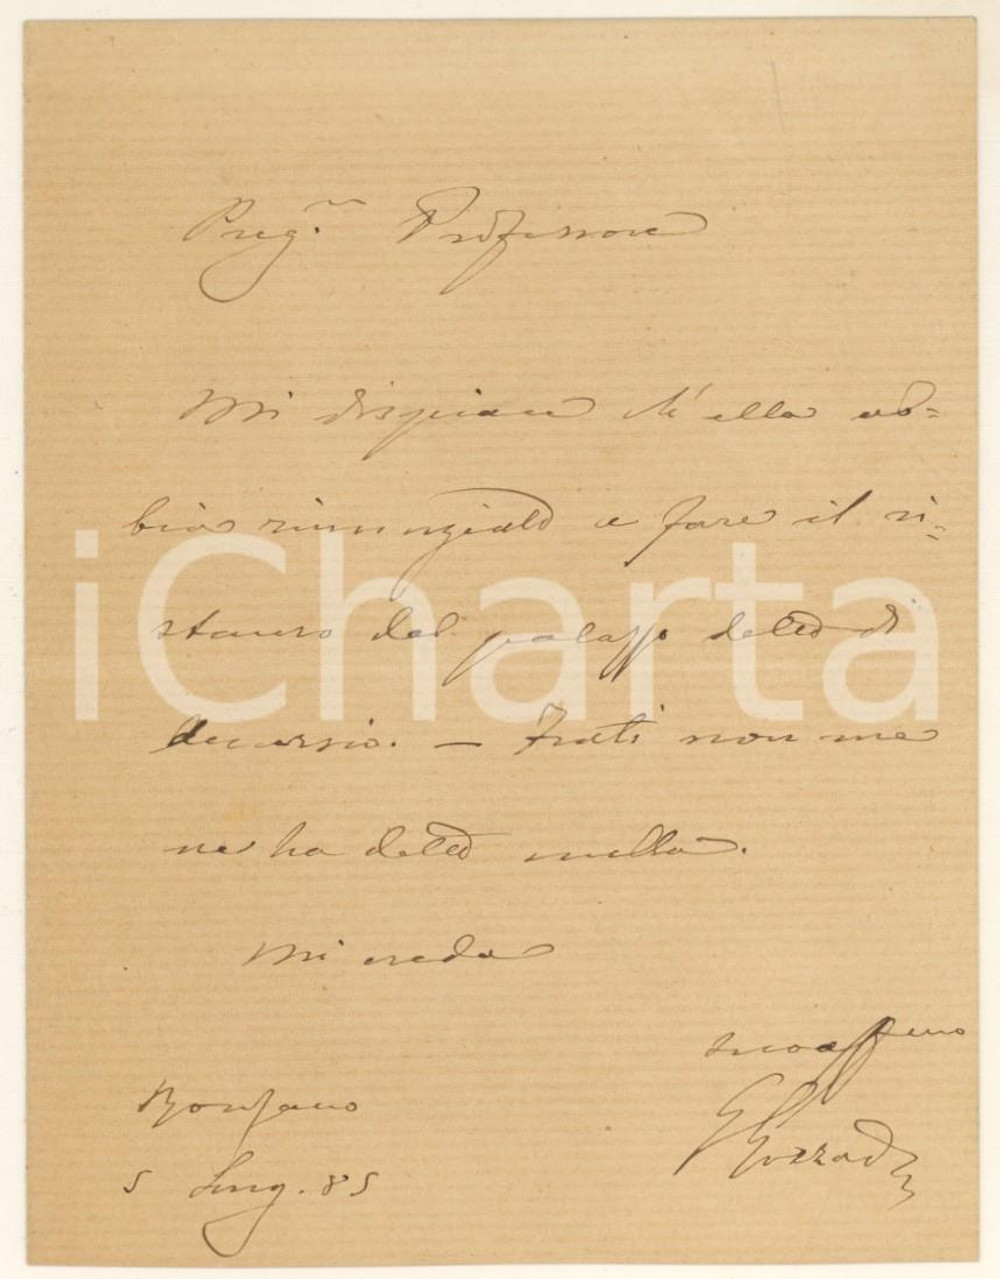 Preg.mo Professore
Mi dispiace ch'ella ab=
bia rinunziato a fare il ri=
stauro del palazzo detto di
Accursio. — Frati non me
ne ha detto nulla.
Mi creda
suo affmo
Ronzano
GGozzadini
5 Lug. 85
iCharta